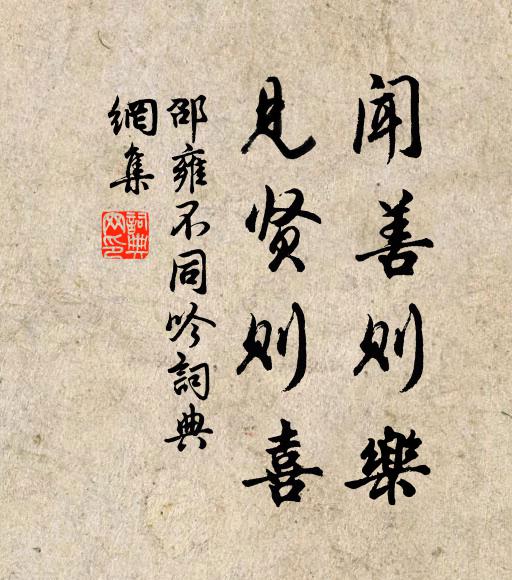 闻善则樂
見贤则喜
邵雍不同吟詞典
網集
詞典网印